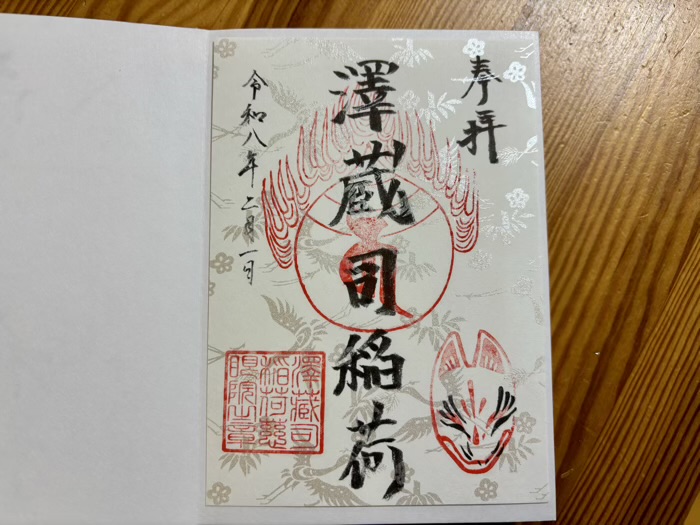 奉拝
澤蔵司稲荷
令和八年二月一日
澤蔵司
稲荷慈
眼院之章